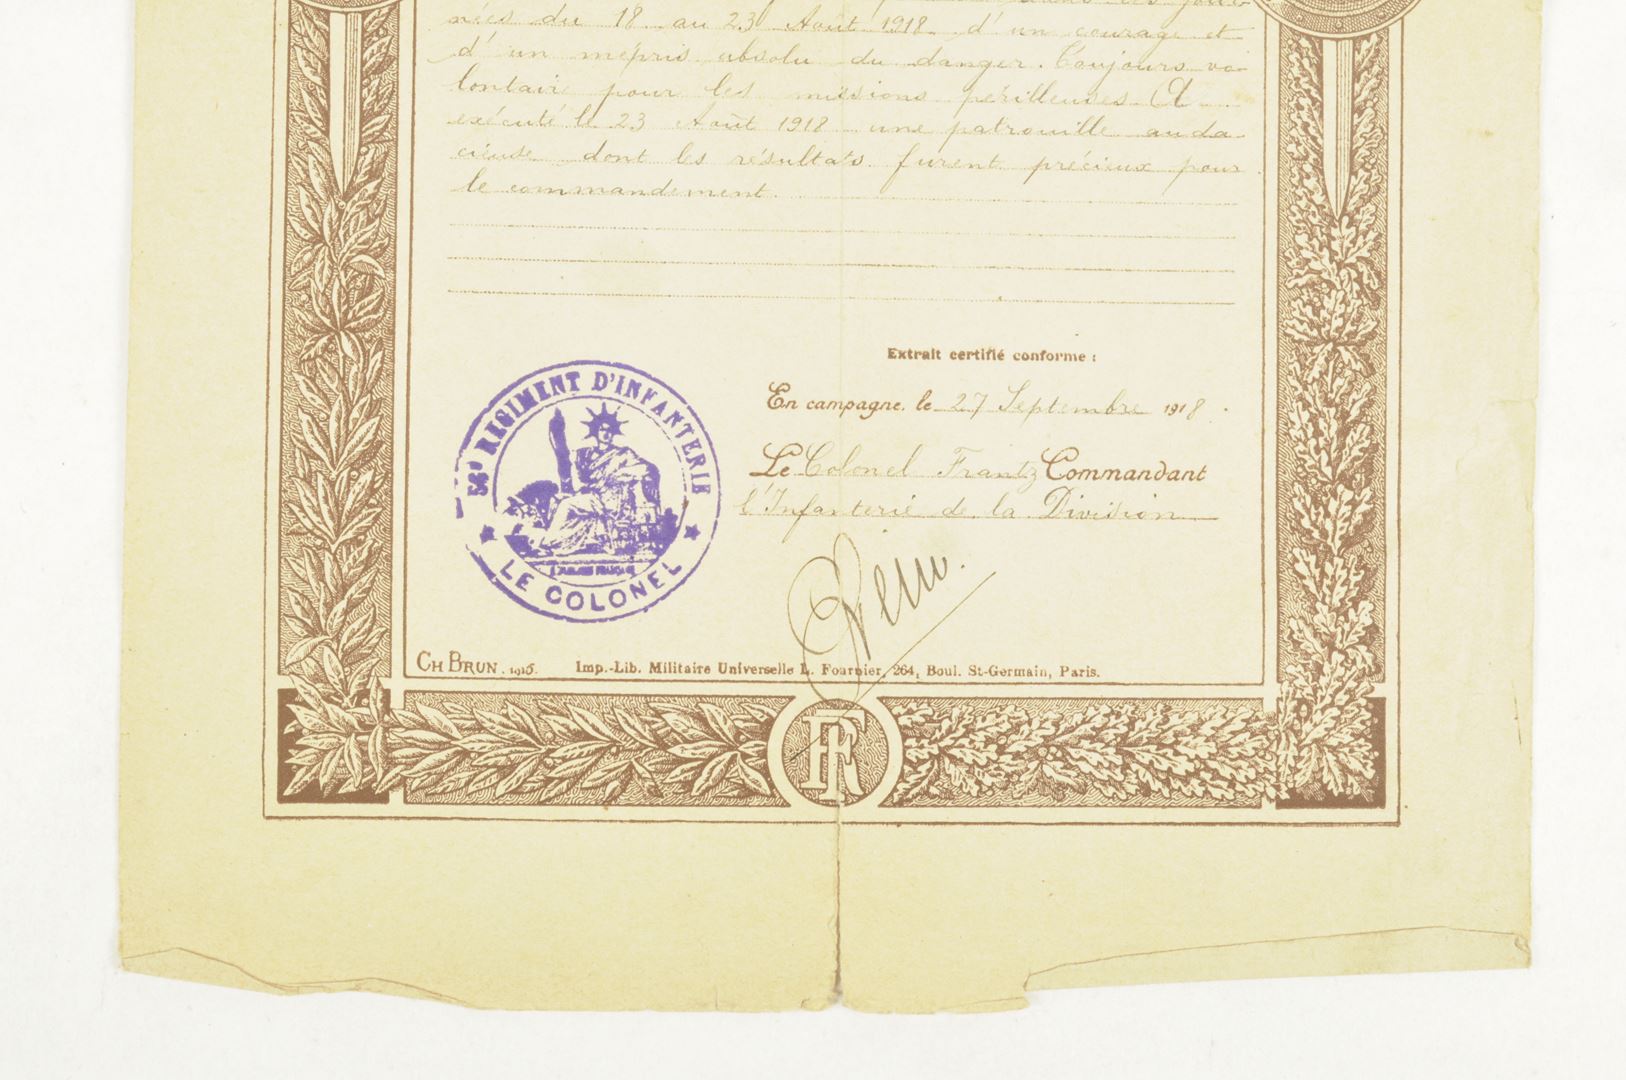 dans les jour-
nées du 18 au 23 Août 1918 d'un courage et
d'un mépris absolu du danger. Toujours vo-
lontaire pour les missions périlleuses A
exécuté le 23 Août 1918 une patrouille auda-
cieuse dont les résultats furent précieux pour
le commandement.
Extrait certifié conforme :
En campagne, le 27 Septembre 1918.
Le Colonel Frantz Commandant
l'Infanterie de la Division
RÉGIMENT D'INFANTERIE
LE COLONEL
CH BRUN. 1915. Imp.-Lib. Militaire Universelle L. Fournier, 264, Boul. St-Germain, Paris.
RF